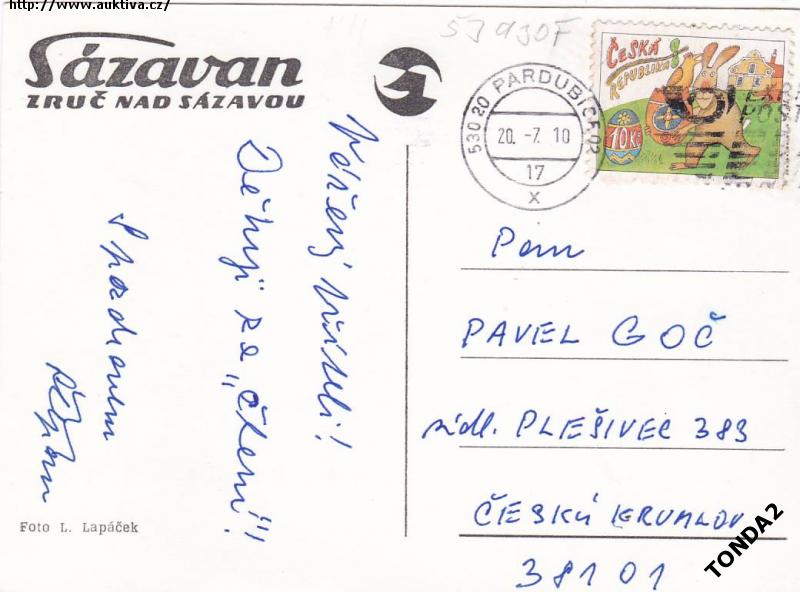 http://www.auktiva.cz/
Sázavan
ZRUČ NAD SÁZAVOU
Vážený příteli!
Děkuji za „čtení"!
S pozdravem
Foto L. Lapáček
ČESKÁ
REPUBLIKA
10 Kč
530 20 PARDUBICE 02
20. -7. 10
17
X
Pan
PAVEL GOČ
sídl. PLEŠIVEC 383
ČESKÝ KRUMLOV
381 01
TONDA2